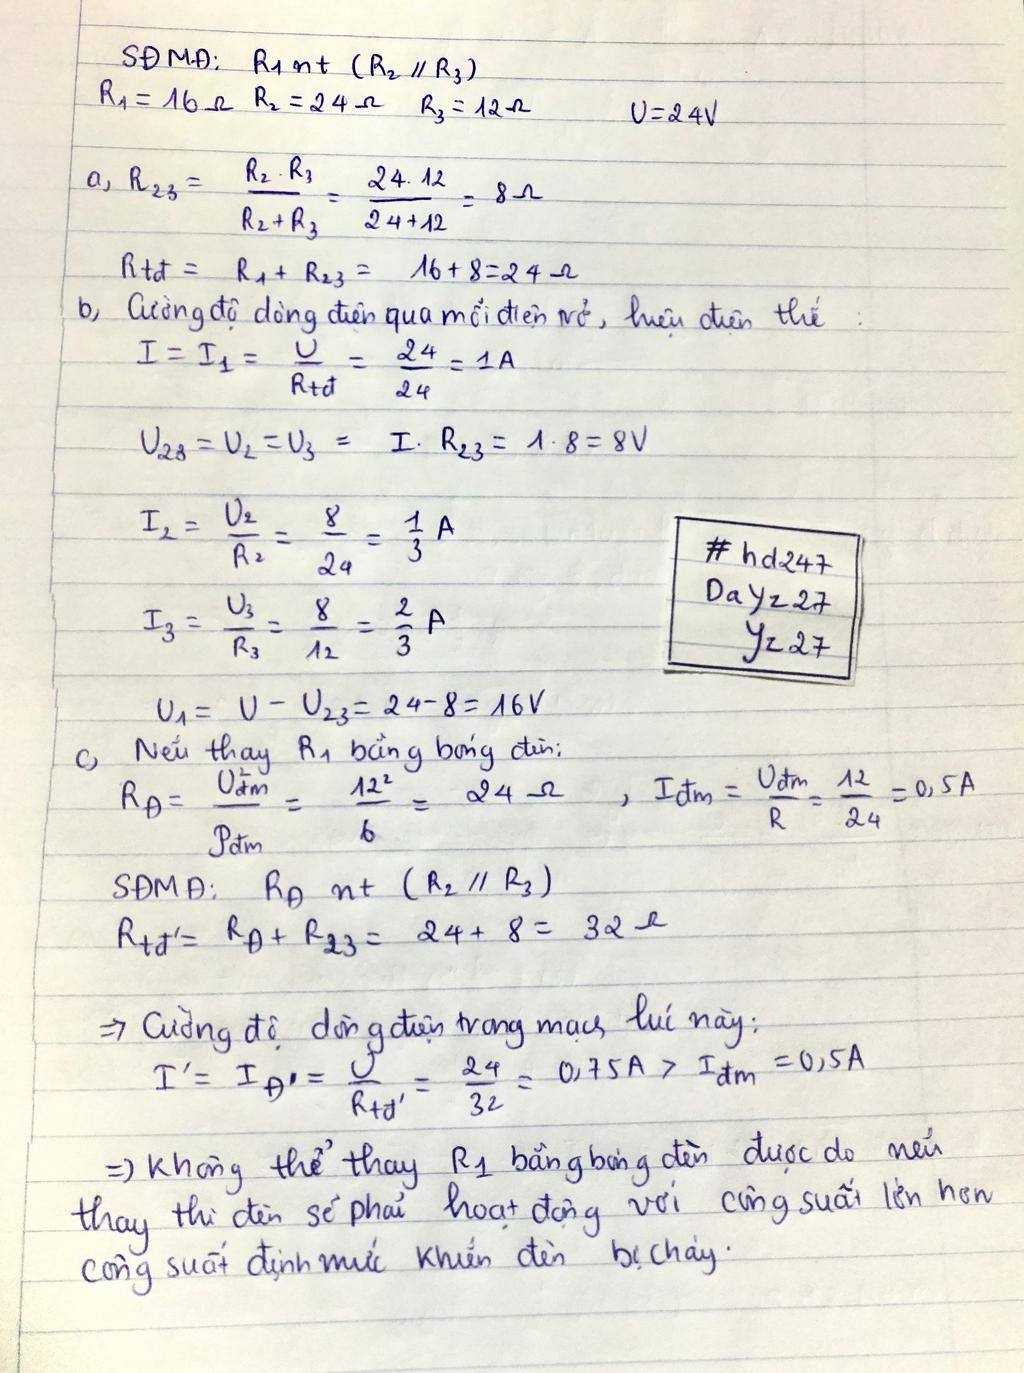 SĐMĐ: R₁ nt (R₂ // R₃)
R₁ = 16 Ω R₂ = 24 Ω R₃ = 12 Ω U = 24V
a, R₂₃ = (R₂ . R₃)/(R₂ + R₃) = (24 . 12)/(24 + 12) = 8 Ω
Rtđ = R₁ + R₂₃ = 16 + 8 = 24 Ω
b, Cường độ dòng điện qua mỗi điện trở, hiệu điện thế :
I = I₁ = U/Rtđ = 24/24 = 1A
U₂₃ = U₂ = U₃ = I . R₂₃ = 1 . 8 = 8V
I₂ = U₂/R₂ = 8/24 = 1/3 A
I₃ = U₃/R₃ = 8/12 = 2/3 A
#hd247
DaYz27
Yz27
U₁ = U - U₂₃ = 24 - 8 = 16V
c, Nếu thay R₁ bằng bóng đèn:
R_Đ = U²đm/Pđm = 12²/6 = 24 Ω , Iđm = Uđm/R = 12/24 = 0,5A
SĐMĐ: R_Đ nt (R₂ // R₃)
Rtđ' = R_Đ + R₂₃ = 24 + 8 = 32 Ω
=> Cường độ dòng điện trong mạch lúc này:
I' = I_Đ' = U/Rtđ' = 24/32 = 0,75A > Iđm = 0,5A
=> Không thể thay R₁ bằng bóng đèn được do nếu
thay thì đèn sẽ phải hoạt động với công suất lớn hơn
công suất định mức khiến đèn bị cháy.